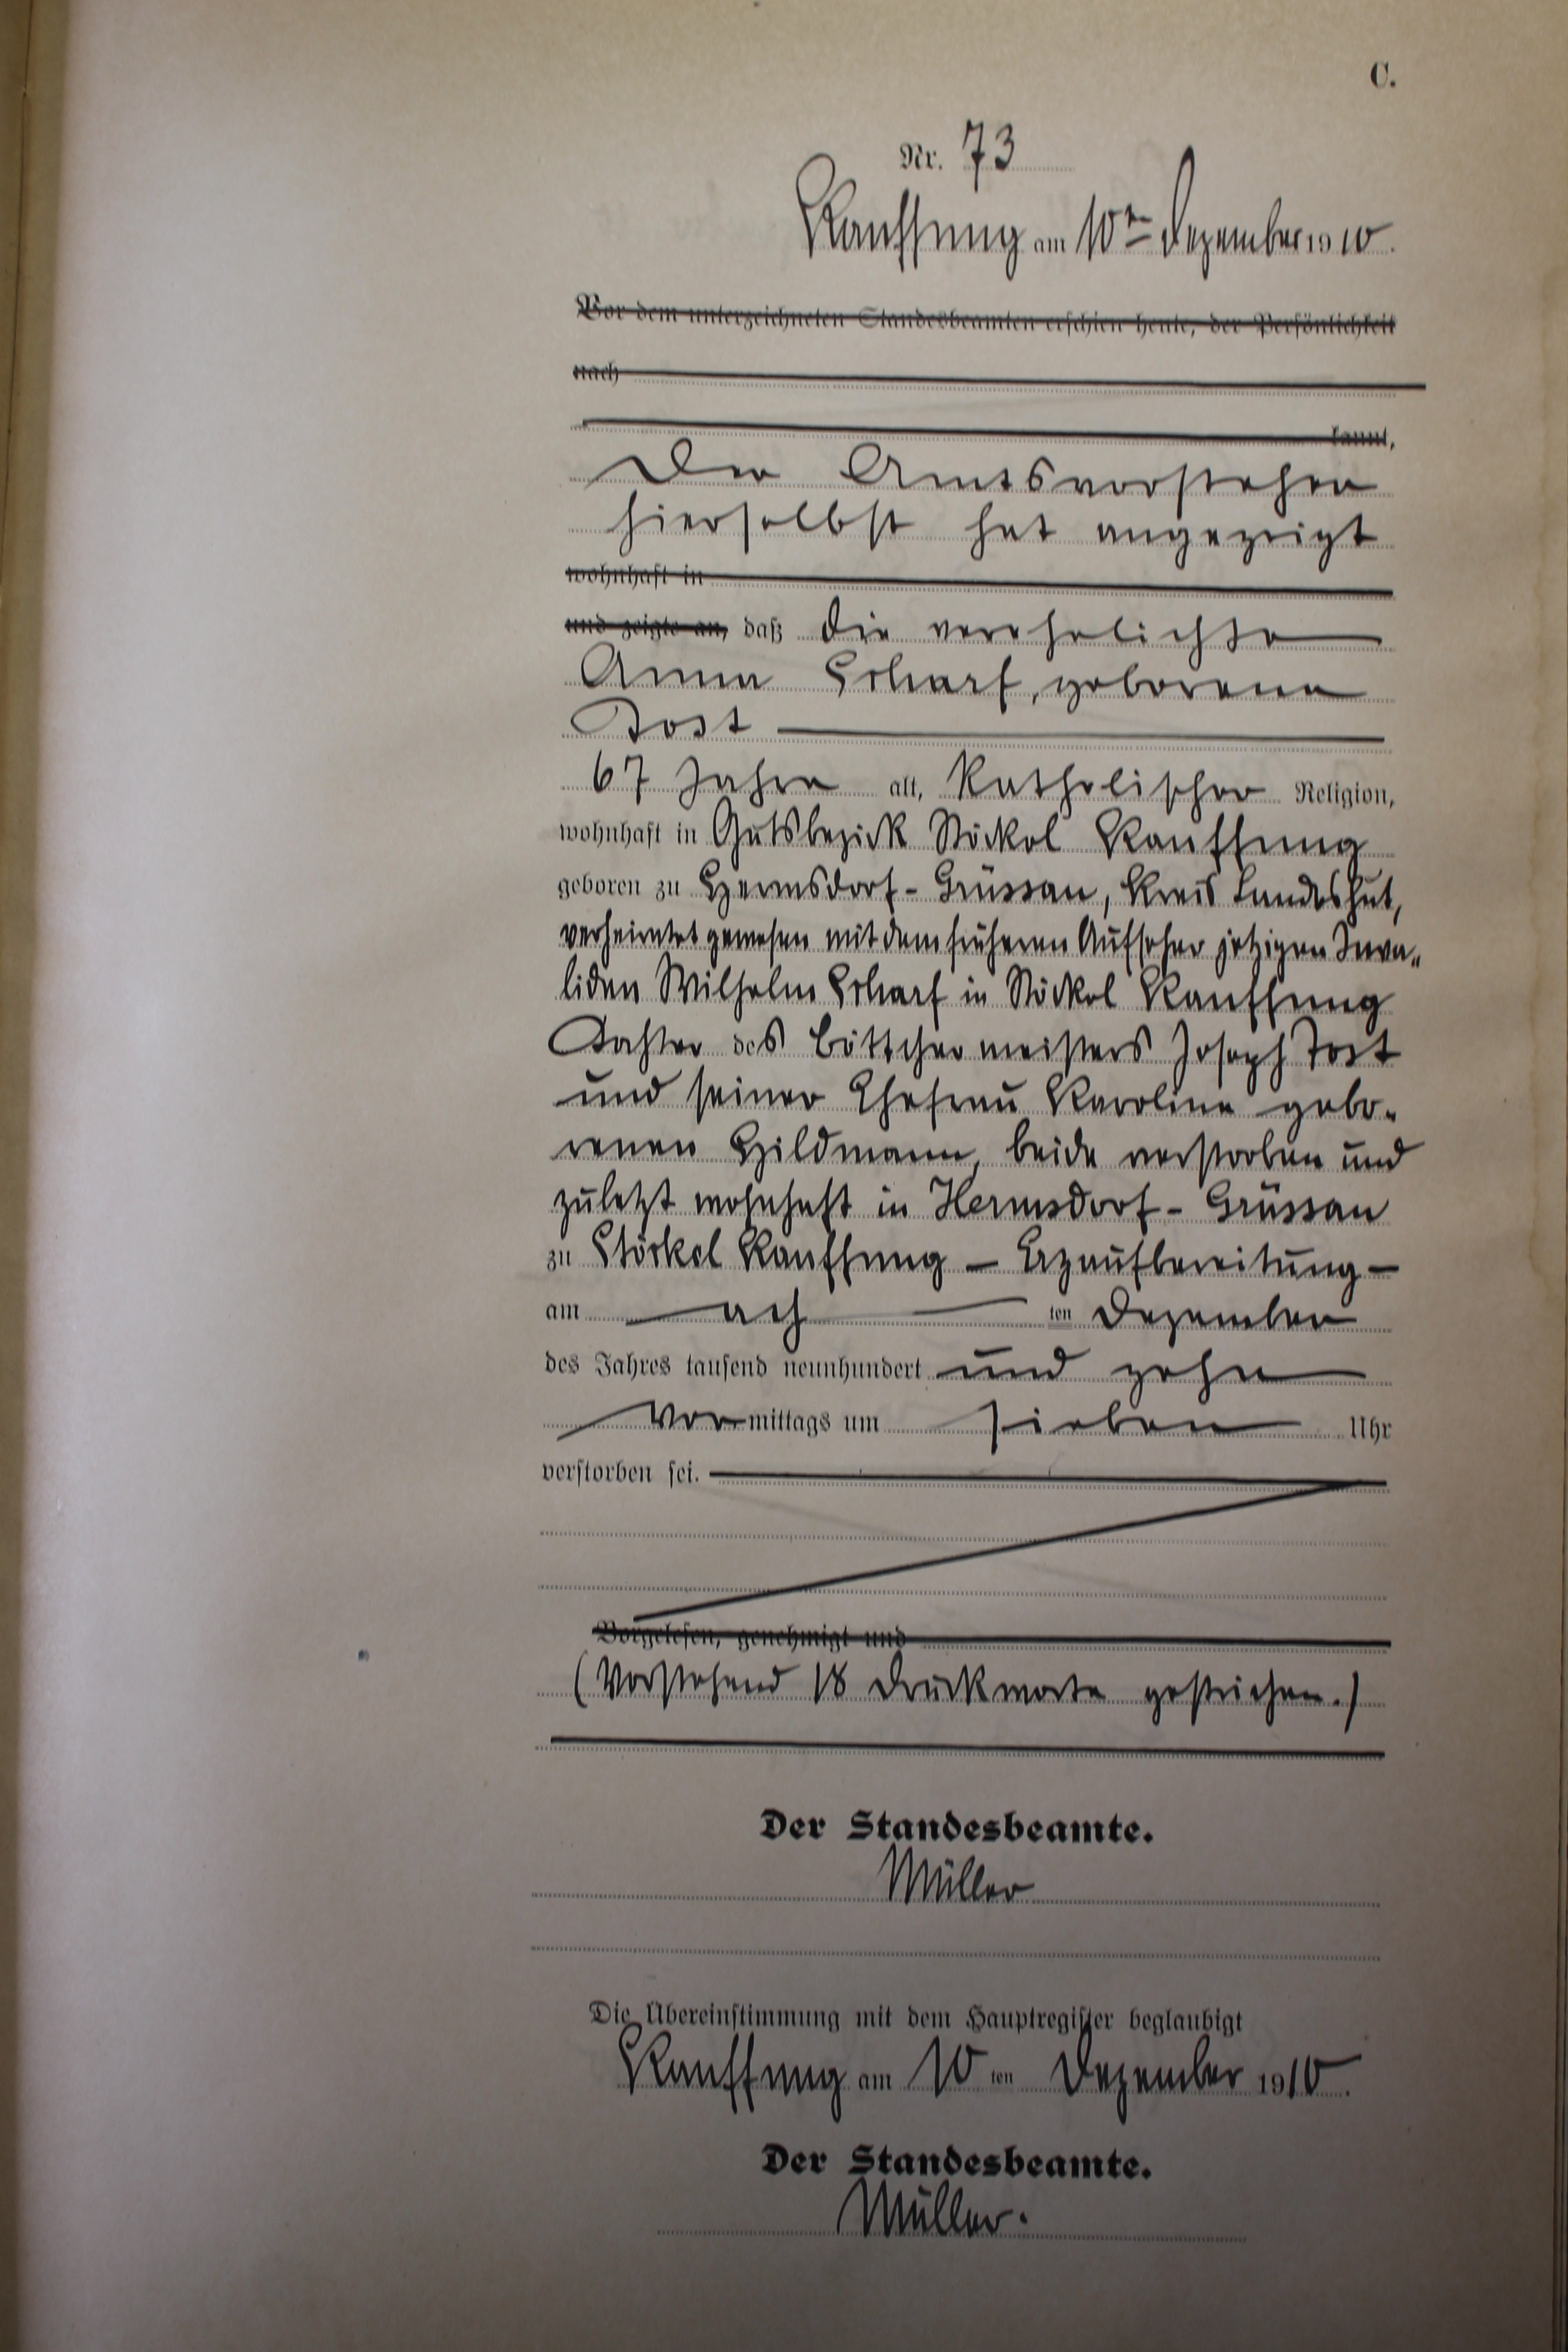 C.
Nr. 73
Kauffung am 10ten Dezember 1910.
Vor dem unterzeichneten Standesbeamten erschien heute, der Persönlichkeit
nach
kannt,
Der Amtsvorsteher
hierselbst hat angezeigt
wohnhaft in
und zeigte an, daß die verehelichte
Anna Scharf, geborene
Tost
67 Jahre alt, Katholischer Religion,
wohnhaft in Gutsbezirk Stöckel Kauffung
geboren zu Hermsdorf-Grüssau, Kreis Landeshut,
verheiratet gewesen mit dem früheren Aufseher jetzigen Inva-
liden Wilhelm Scharf in Stöckel Kauffung
Tochter des Böttchermeisters Joseph Tost
und seiner Ehefrau Karoline gebo-
renen Hildmann, beide verstorben und
zuletzt wohnhaft in Hermsdorf-Grüssau
zu Stöckel Kauffung - Erzaufbereitung -
am ach ten Dezember
des Jahres tausend neunhundert und zehn
Vor mittags um sieben Uhr
verstorben sei.
Vorgelesen, genehmigt und
(Vorstehend 18 Druckworte gestrichen.)
Der Standesbeamte.
Müller
Die Übereinstimmung mit dem Hauptregister beglaubigt
Kauffung am 10 ten Dezember 1910.
Der Standesbeamte.
Müller.